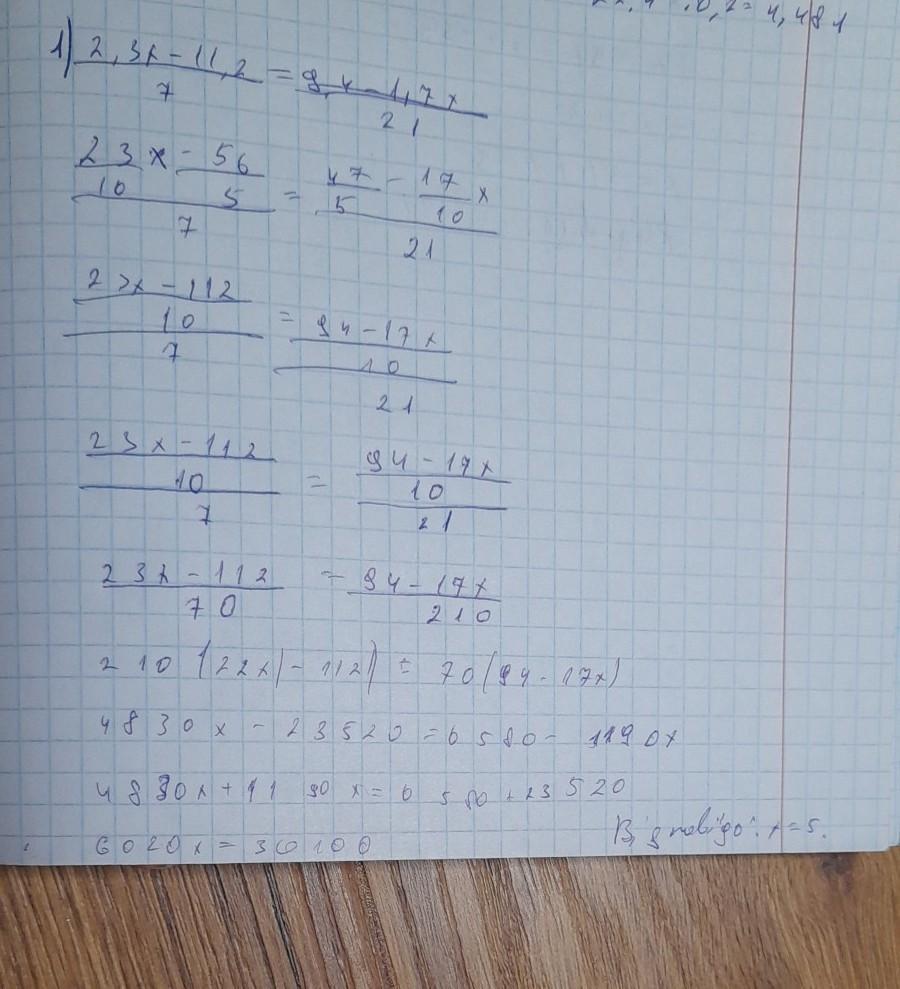 0,2 = 4,481
1) (2,3x - 11,2)/7 = (9,4 - 1,7x)/21
(23/10 x - 56/5)/7 = (47/5 - 17/10 x)/21
((23x - 112)/10)/7 = ((94 - 17x)/10)/21
((23x - 112)/10)/7 = ((94 - 17x)/10)/21
(23x - 112)/70 = (94 - 17x)/210
210 (23x - 112) = 70 (94 - 17x)
4830x - 23520 = 6580 - 1190x
4830x + 1190x = 6580 + 23520
6020x = 30100
Відповідь: x = 5.